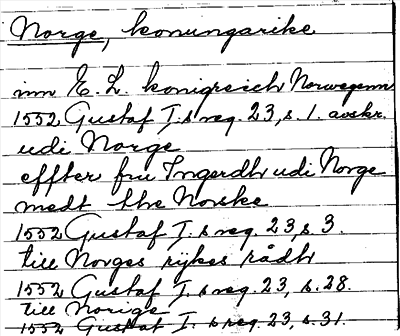 Norge, konungarike
inn E. L. konigreich Norwegenn
1552 Gustaf I. s reg. 23, s. 1. avskr.
udi Norge
effter fru Ingerdh udi Norge
medt the Norske
1552 Gustaf I. s reg. 23, s. 3.
till Norges rykes rådh
1552 Gustaf I. s reg. 23, s. 28.
till Norige
1552 Gustaf I. s reg. 23, s. 31.